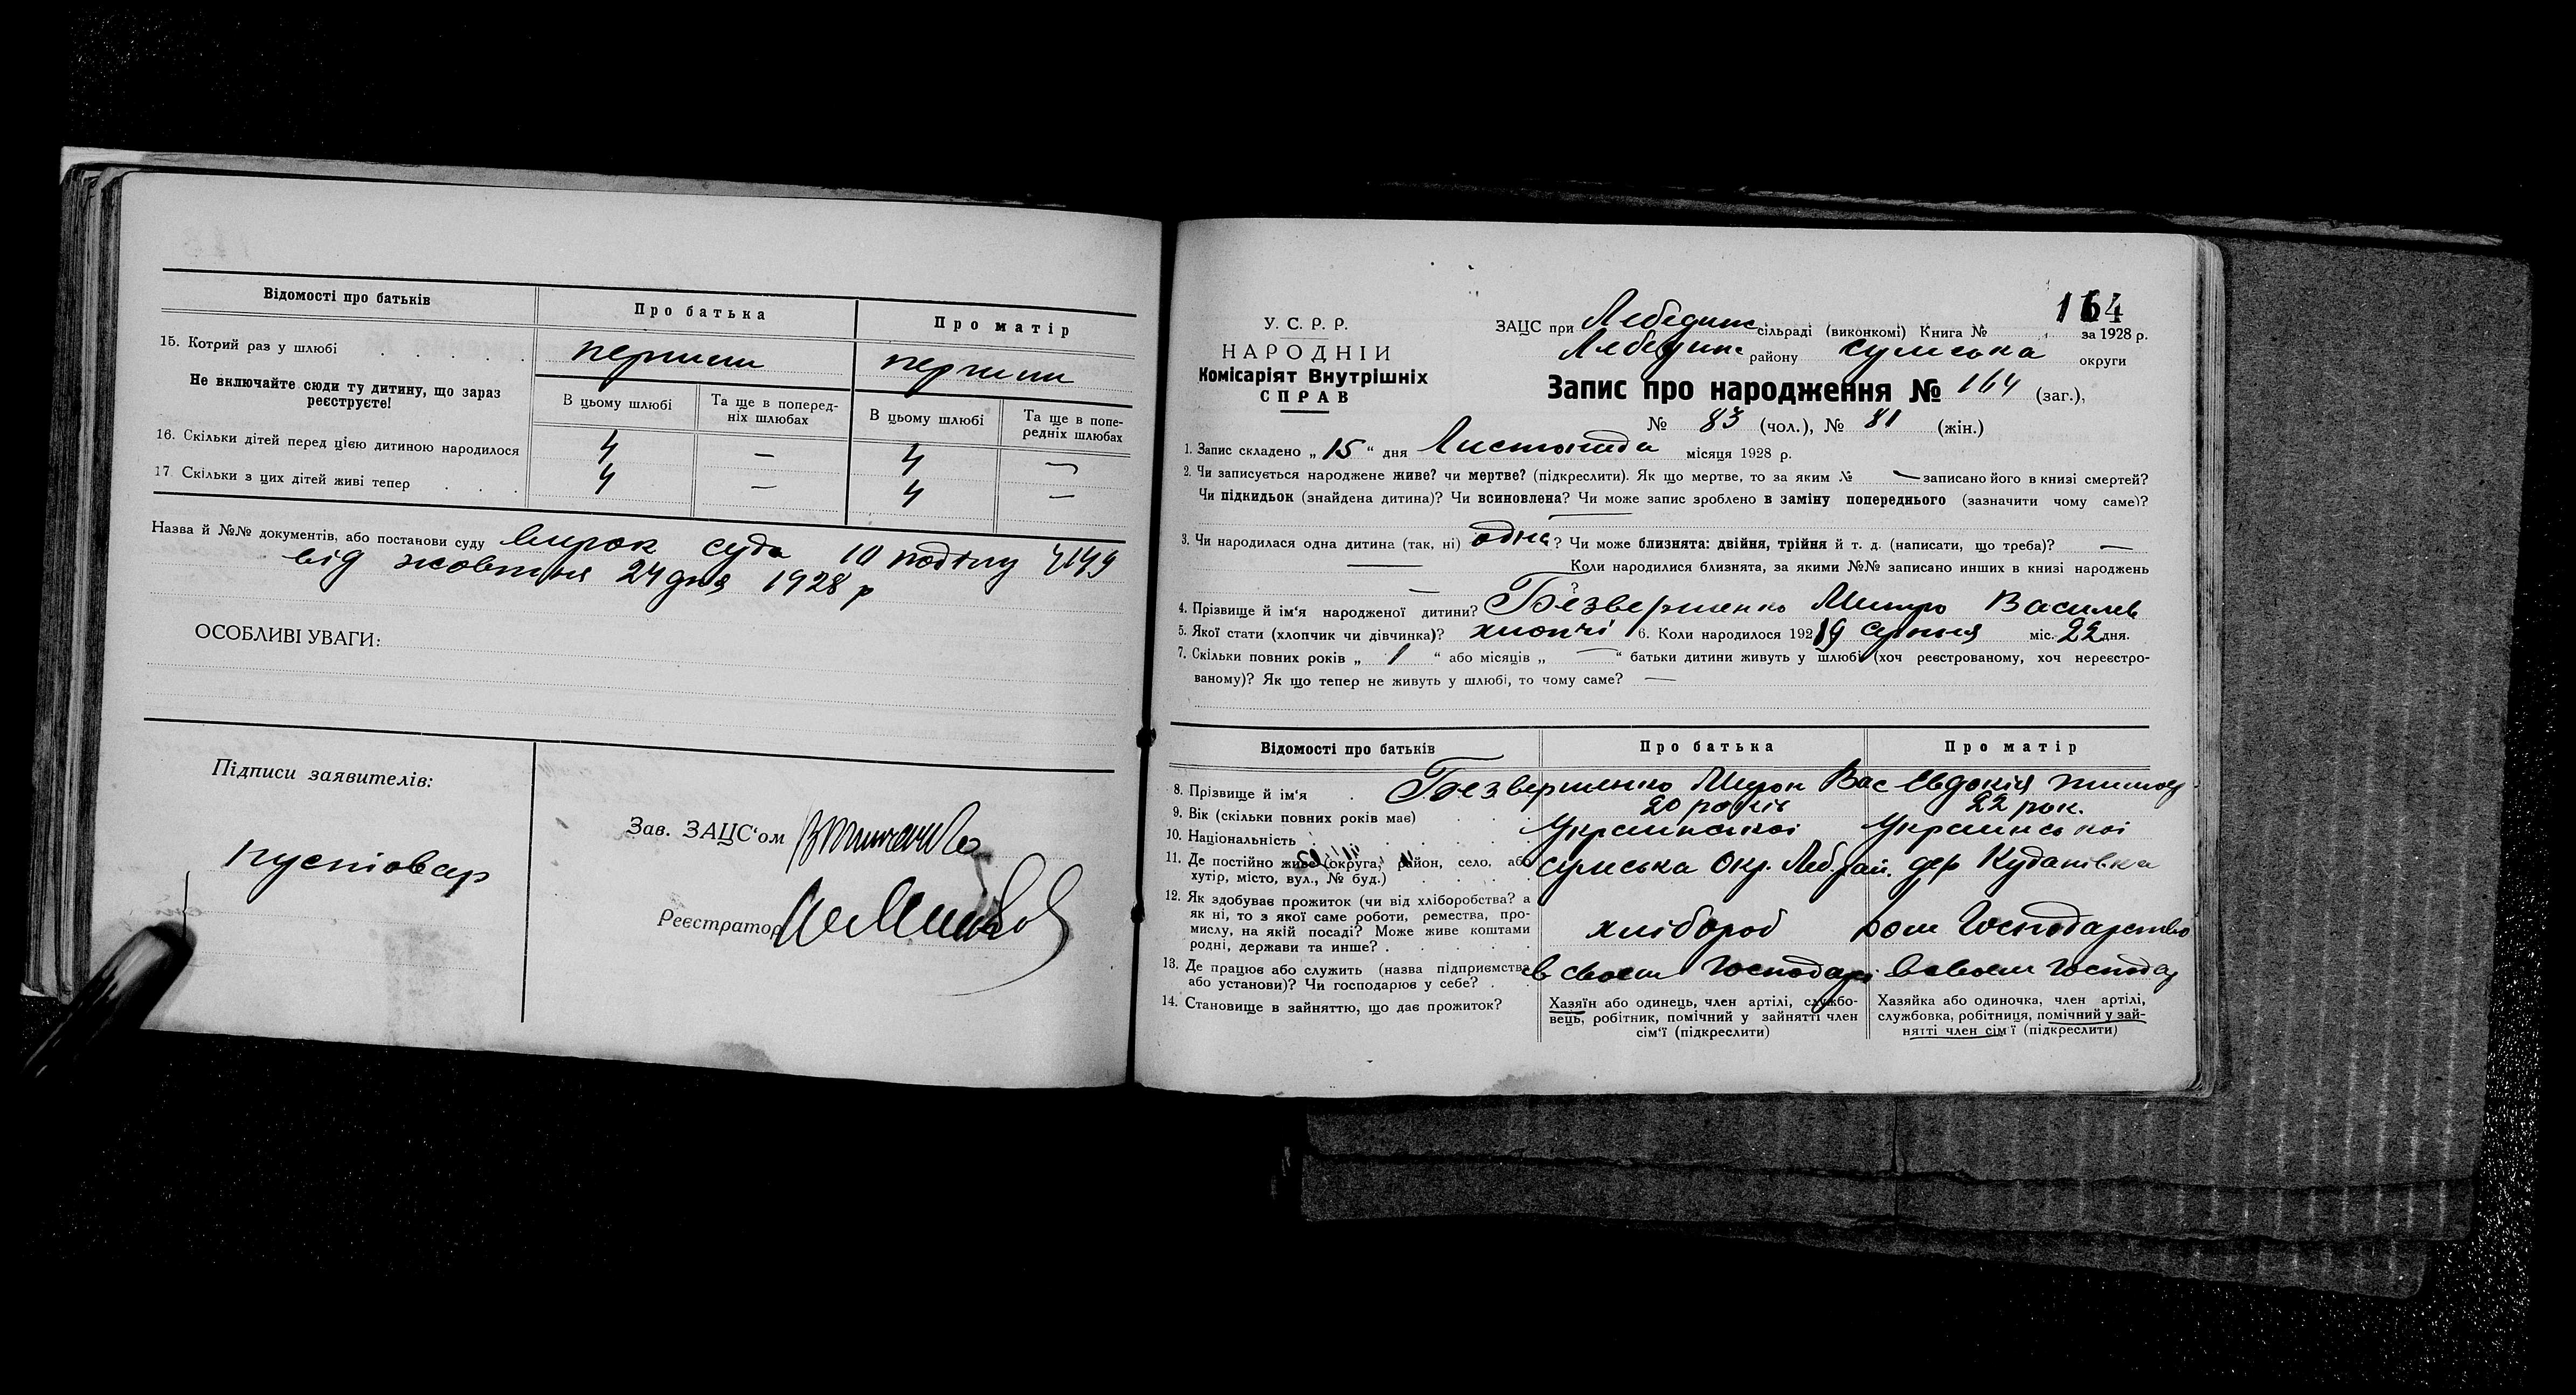 Відомості про батьків
Про батька
Про матір
15. Котрий раз у шлюбі
перший
перший
Не включайте сюди ту дитину, що зараз
реєструєте!
В цьому шлюбі
Та ще в поперед-
ніх шлюбах
В цьому шлюбі
Та ще в попе-
редніх шлюбах
16. Скільки дітей перед цією дитиною народилося
4 — 4 —
17 Скільки з цих дітей живі тепер
4 — 4 —
Назва й №№ документів, або постанови суду вирок суда 10
від жовтня 24 дня 1928 р
ОСОБЛИВІ УВАГИ:
Підписи заявителів:
пустовар
Зав. ЗАЦС‘ом
Реєстратор
164
У. С. Р. Р.
НАРОДНІЙ
Комісаріят Внутрішніх
СПРАВ
ЗАЦС при Лебединс сільраді (виконкомі) Книга № за 1928 р.
Лебединс району сумська округи
Запис про народження № 164 (заг.),
№ 83 (чол.), № 81 (жін.)
1. Запис складено „ 15 “ дня Листопада місяця 1928 р.
2. Чи записується народжене живе? чи мертве? (підкреслити). Як що мертве, то за яким № — записано його в книзі смертей?
Чи підкидьок (знайдена дитина)? Чи всиновлена? Чи може запис зроблено в заміну попереднього (зазначити чому саме)?
3. Чи народилася одна дитина (так, ні) одна ? Чи може близнята: двійня, трійня й т. д. (написати, що треба)? —
Коли народилися близнята, за якими №№ записано инших в книзі народжень
— ?
4. Прізвище й ім‘я народженої дитини? Безвершенко Митро Василев
5. Якої стати (хлопчик чи дівчинка)? хлопчі 6. Коли народилося 192 серпня міс. 22 дня.
7. Скільки повних років „ 1 “ або місяців „ — “ батьки дитини живуть у шлюбі (хоч реєстрованому, хоч нереєстро-
ваному)? Як що тепер не живуть у шлюбі, то чому саме? —
Відомості про батьків
Про батька
Про матір
8. Прізвище й ім‘я . Безвершенко Мирон Вас Евдокія
9. Вік (скільки повних років має) 20 років 22 рок.
10. Національність Украинскоі Украинскоі
11. Де постійно живе (округа, район, село, або
хутір, місто, вул., № буд.)
сумська Окр. Леб. рай. дер Куданівка
12. Як здобуває прожиток (чи від хліборобства? а
як ні, то з якої саме роботи, ремества, про-
мислу, на якій посаді? Може живе коштами
родні, держави та инше?
хлібороб дом Господарство
13. Де працює або служить (назва підприємства
або установи)? Чи господарює у себе?
в своем Господарі в своем господ
14. Становище в зайняттю, що дає прожиток?
Хазяїн або одинець, член артілі, службо-
вець, робітник, помічний у зайнятті член
сім‘ї (підкреслити)
Хазяйка або одиночка, член артілі,
службовка, робітниця, помічний у зай-
нятті член сім‘ї (підкреслити)